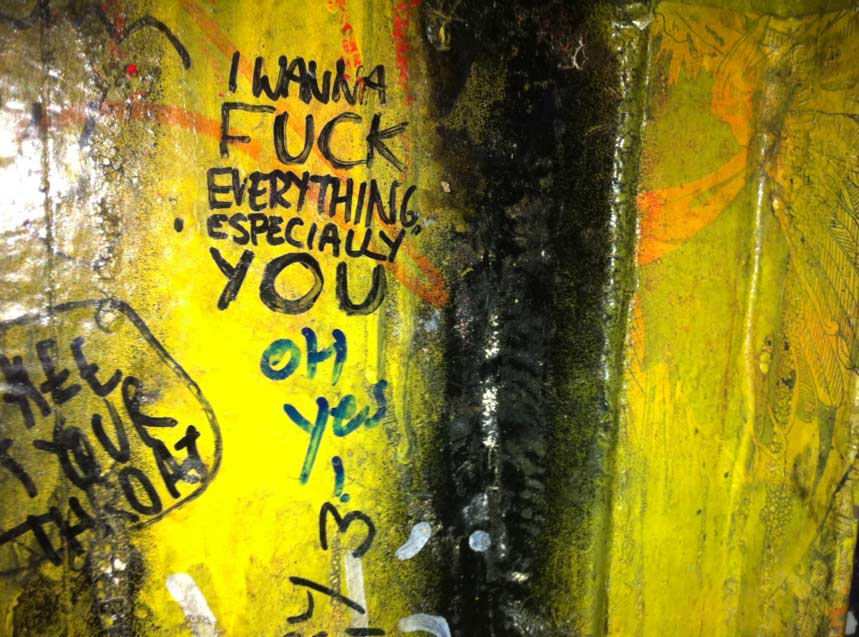 I WANNA
FUCK
EVERYTHING,
ESPECIALLY
YOU
OH
Yes
!
YOUR
THROAT